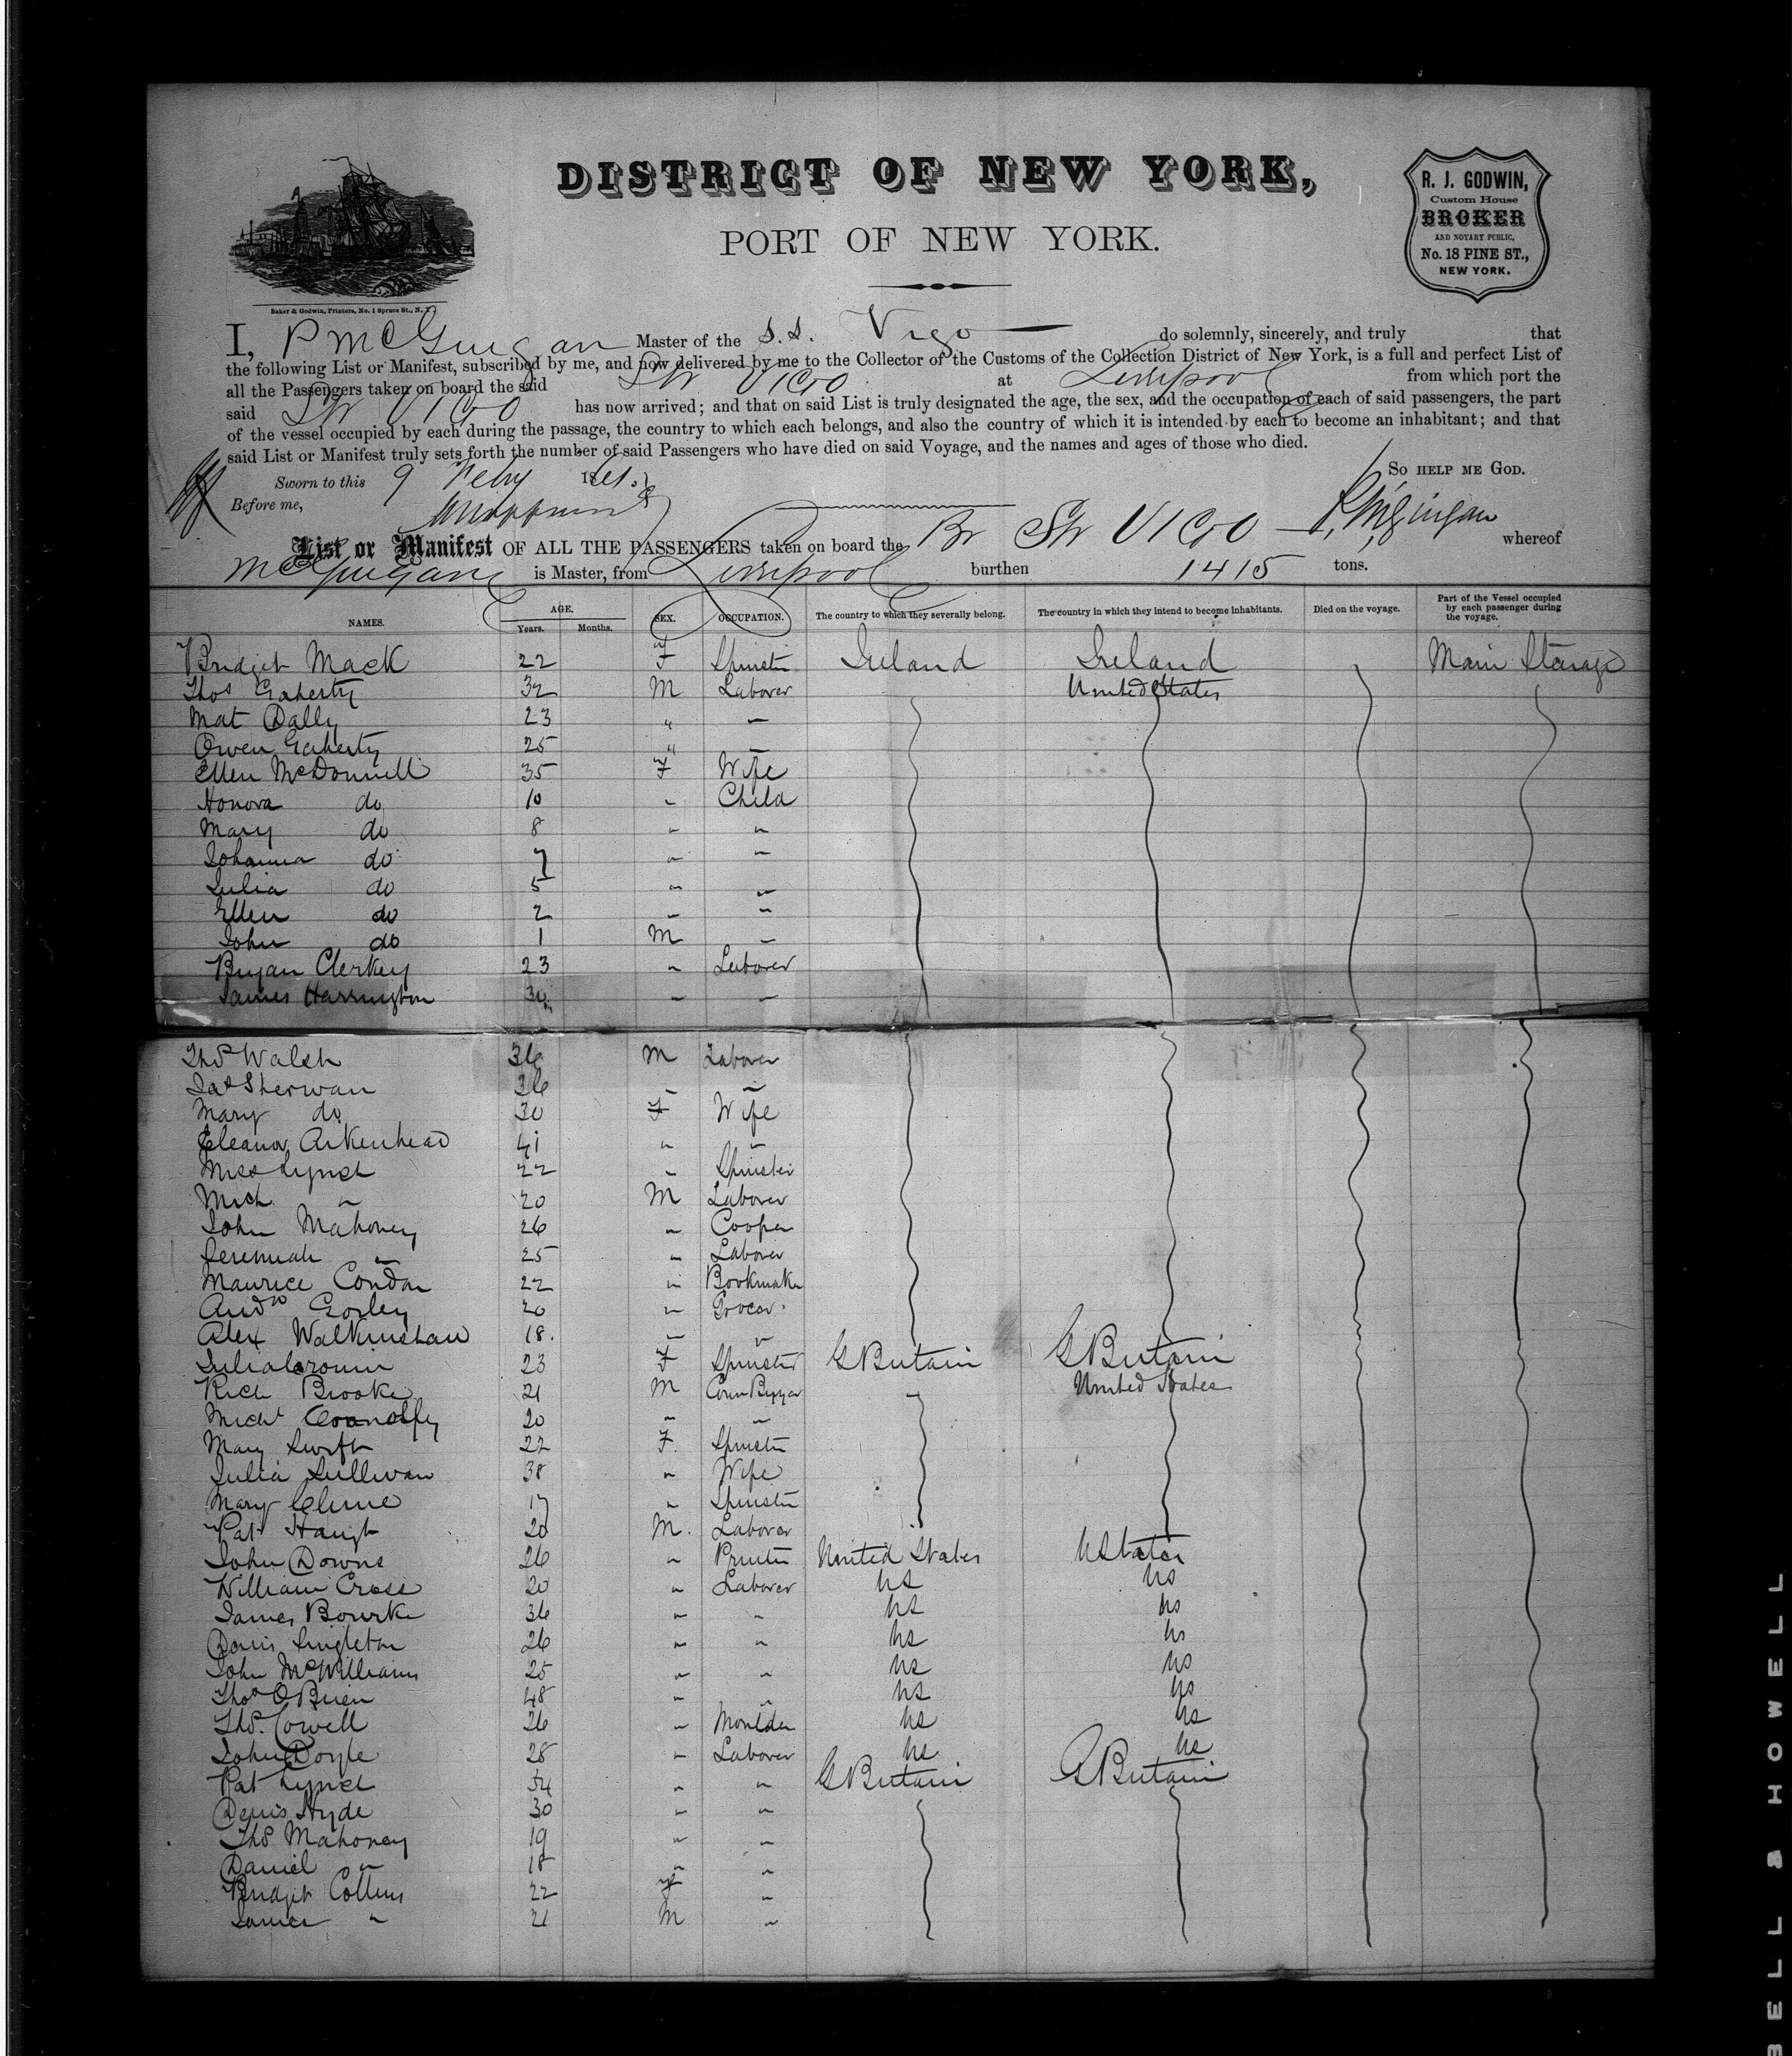 DISTRICT OF NEW YORK,
PORT OF NEW YORK.
R. J. GODWIN,
Custom House
BROKER
AND NOTARY PUBLIC,
No. 18 PINE ST.,
NEW YORK.
Baker & Godwin, Printers, No. 1 Spruce St., N. Y.
I, P McGuigan Master of the S.S. Vigo do solemnly, sincerely, and truly that
the following List or Manifest, subscribed by me, and now delivered by me to the Collector of the Customs of the Collection District of New York, is a full and perfect List of
all the Passengers taken on board the said Str VIGO at Liverpool from which port the
said Str VIGO has now arrived; and that on said List is truly designated the age, the sex, and the occupation of each of said passengers, the part
of the vessel occupied by each during the passage, the country to which each belongs, and also the country of which it is intended by each to become an inhabitant; and that
said List or Manifest truly sets forth the number of said Passengers who have died on said Voyage, and the names and ages of those who died.
So HELP ME GOD.
Sworn to this 9 Feby 1861.
Before me,
P. McGuigan
List or Manifest OF ALL THE PASSENGERS taken on board the Br Str VIGO whereof
McGuigan is Master, from Liverpool burthen 1415 tons.
NAMES. AGE. Years. Months. SEX. OCCUPATION. The country to which they severally belong. The country in which they intend to become inhabitants. Died on the voyage. Part of the Vessel occupied by each passenger during the voyage.
Bridget Mack 22 F Spinster Ireland Ireland Main Steerage
Thos Gaherty 32 M Laborer United States
Mat Dally 23 " "
Owen Gaherty 25 " "
Ellen McDonnell 35 F Wife
Honora do 10 " Child
Mary do 8 " "
Johanna do 7 " "
Julia do 5 " "
Ellen do 2 " "
John do 1 M "
Bryan Clerkey 23 " Laborer
James Harrington 30 " "
Thos Walsh 36 M Laborer
Jas Sherwan 36 "
Mary do 30 F Wife
Eleanor Aikenhead 41 " "
Miss Lynch 22 " Spinster
Mich " 20 M Laborer
John Mahoney 26 " Cooper
Jeremiah " 25 " Laborer
Maurice Condon 22 " Bookmaker
Andw Gorley 20 " Grocer
Alex Walkinshaw 18. " "
Julia Cronin 23 F Spinster G Britain G Britain
Rich Brooke 21 M United States
Michl Connolly 20 " "
Mary Swift 22 F. Spinster
Julia Sullivan 38 " Wife
Mary Clune 17 " Spinster
Pat Haugh 20 M. Laborer
John Downs 26 " Printer United States U States
William Cross 20 " Laborer US US
James Bourke 36 " " US US
Denis Singleton 26 " " US US
John McWilliams 25 " " US US
Thos O'Brien 48 " " US US
Thos. Cowell 26 " Moulder US US
John Doyle 28 " Laborer US US
Pat Lynch 34 " " G Britain G Britain
Denis Hyde 30 " "
Thos Mahoney 19 " "
Daniel " 18 " "
Bridget Collins 22 F "
James " 21 M "
BELL & HOWELL